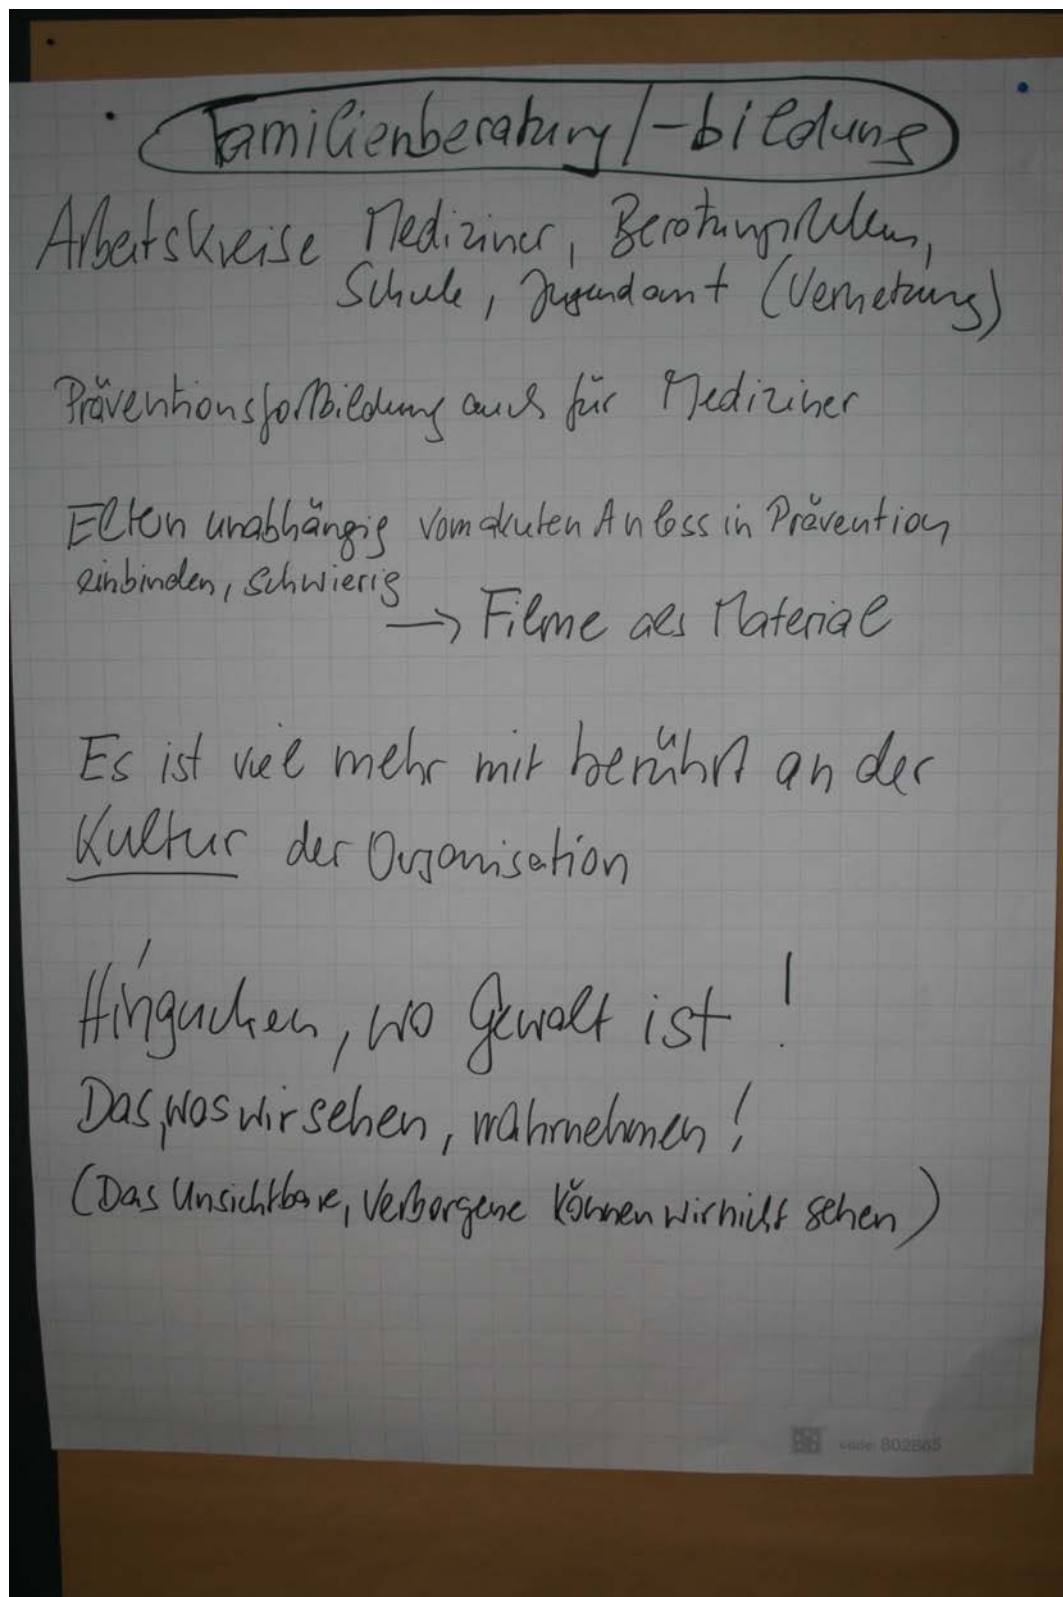 Familienberatung/-bildung
Arbeitskreise Mediziner, Beratungsstellen,
Schule, Jugendamt (Vernetzung)
Präventionsfortbildung auch für Mediziner
Eltern unabhängig vom akuten Anlass in Prävention
einbinden, schwierig
→ Filme als Material
Es ist viel mehr mit berührt an der
Kultur der Organisation
Hingucken, wo Gewalt ist!
Das, was wir sehen, wahrnehmen!
(Das Unsichtbare, Verborgene können wir nicht sehen)
code: 802865